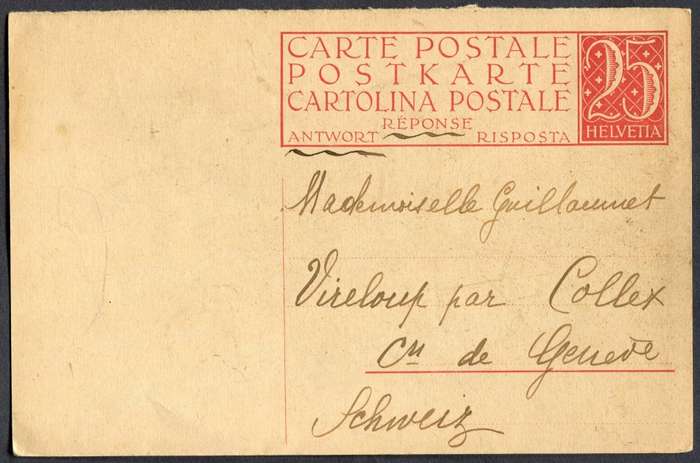 CARTE POSTALE
POSTKARTE
CARTOLINA POSTALE
RÉPONSE
ANTWORT RISPOSTA
25
HELVETIA
Mademoiselle Guillaumet
Vireloup par Collex
Cn de Genève
Schweiz